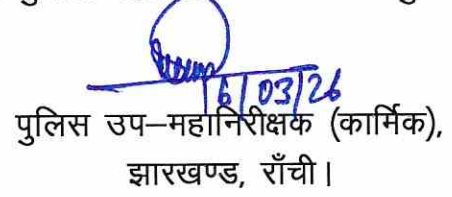 16/03/26
पुलिस उप–महानिरीक्षक (कार्मिक),
झारखण्ड, राँची।